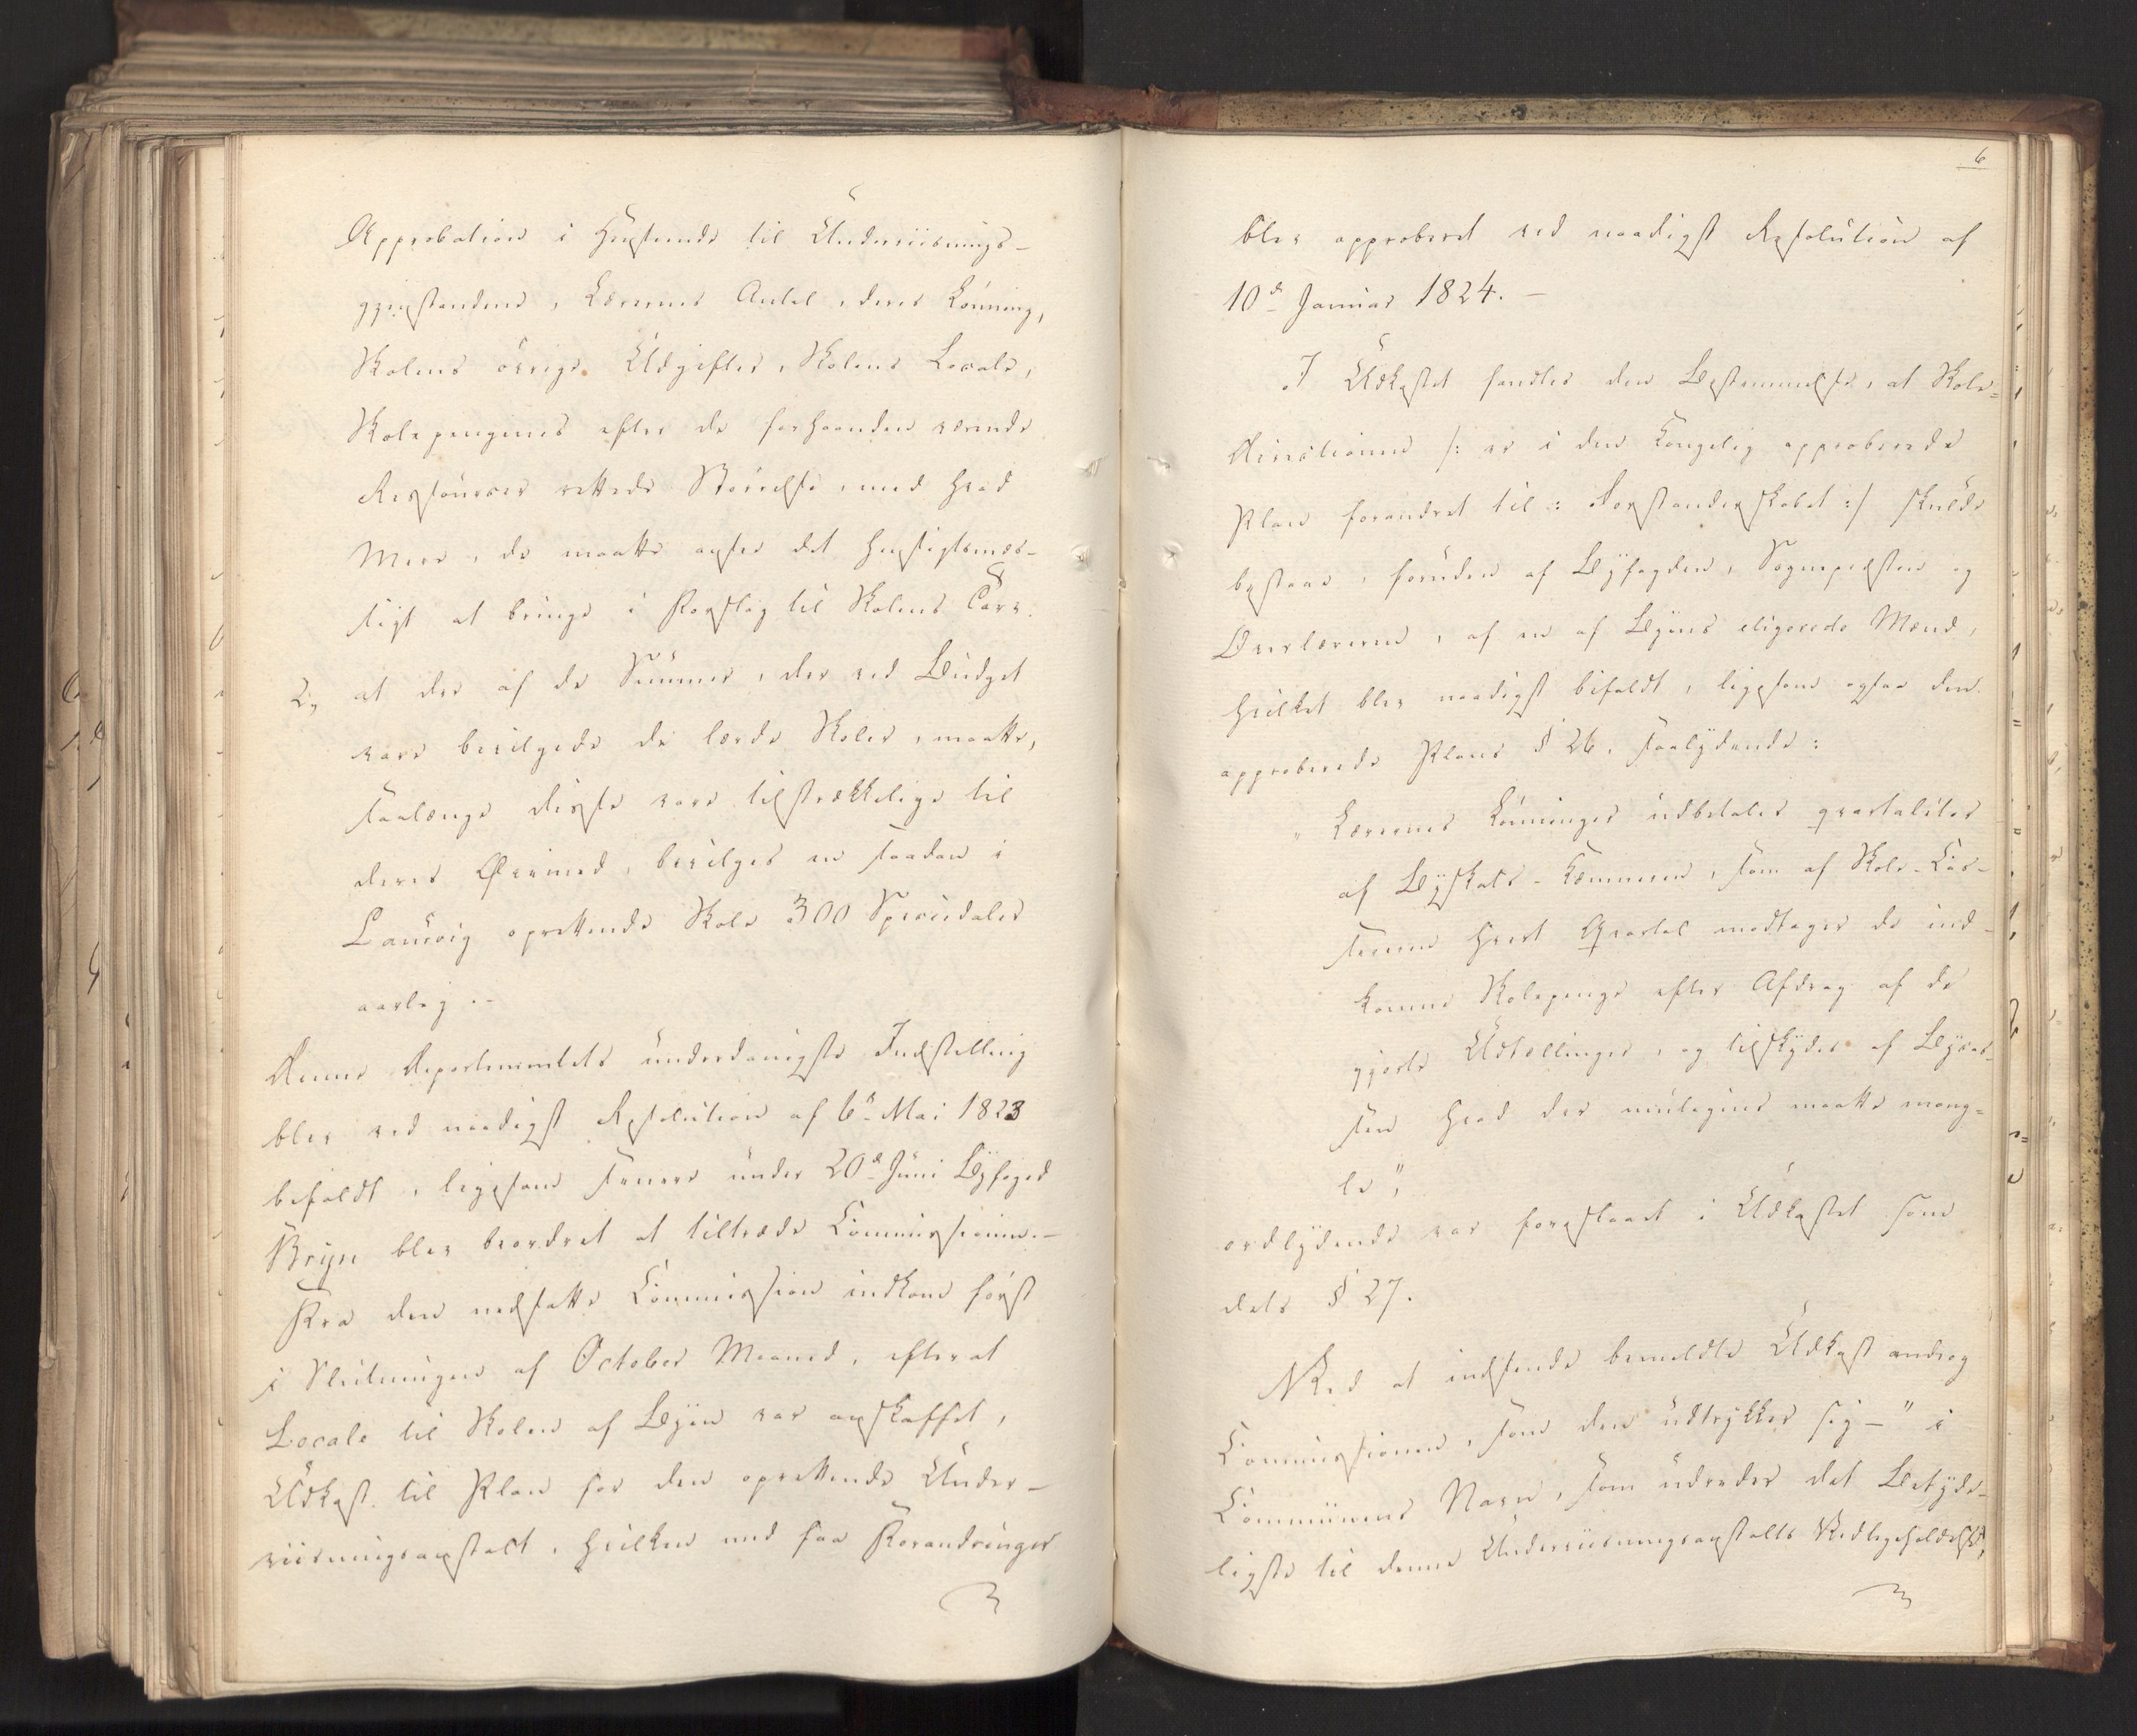 Approbation i Henseende til Underviisnings-
gjenstandene, Lærernes Antal, deres Lønning,
Skolens øvrige Udgifter, Skolens Locale,
Skolepengenes efter de forhaanden værende
Ressourcer rettede Størrelse, med hvad
Meer, de maatte ansee det hensigtsmæs-
sigt at bringe i Forslag til Skolens Tarv.
2, at der af de Summer, der ved Budget
vare bevilgede de lærde Skoler, maatte,
saalænge disse vare tilstrækkelige til
deres Øiemed, bevilges en saadan i
Laurvig oprettende Skole 300 Speciedaler
aarlig.-
Denne Departementets underdanigste Indstilling
blev ved naadigst Resolution af 6te Mai 1823
bifaldt, ligesom senere under 20de Juni Byfoged
Bryn blev beordret at tiltræde Commissionen.-
Fra den nedsatte Commission indkom først
i Slutningen af October Maaned, efterat
Locale til Skolen af Byen var anskaffet,
Udkast til Plan for den oprettende Under-
viisningsanstalt, hvilken med faa Forandringer
6
blev approberet ved naadigst Resolution af
10de Januar 1824.-
I Udkastet fandtes den Bestemmelse, at Skole-
Directionen /: er i den Kongelig approberede
Plan forandret til: Forstanderskabet :/ skulde
bestaae, foruden af Byfogden, Sognepræsten og
Overlæreren, af en af Byens eligerede Mænd,
hvilket blev naadigst bifaldt, ligesom ogsaa den
approberede Plans § 26, saalydende:
" Lærernes Lønninger udbetales qvartaliter
af Byskats-Kæmneren, som af Skole-Cas-
sereren hvert Qvartal modtager de ind-
komne Skolepenge efter Afdrag af de
gjorte Udtællinger, og tilskydes af Bycas-
sen hvad der muligens maatte mang-
le",
ordlydende var foreslaaet i Udkastet som
dets § 27.
Ved at indsende bemeldte Udkast androg
Commissionen, som den udtrykker sig-" i
Communens Navn, som udreder det Betyde-
ligste til denne Underviisningsanstalts Vedligeholdelse,